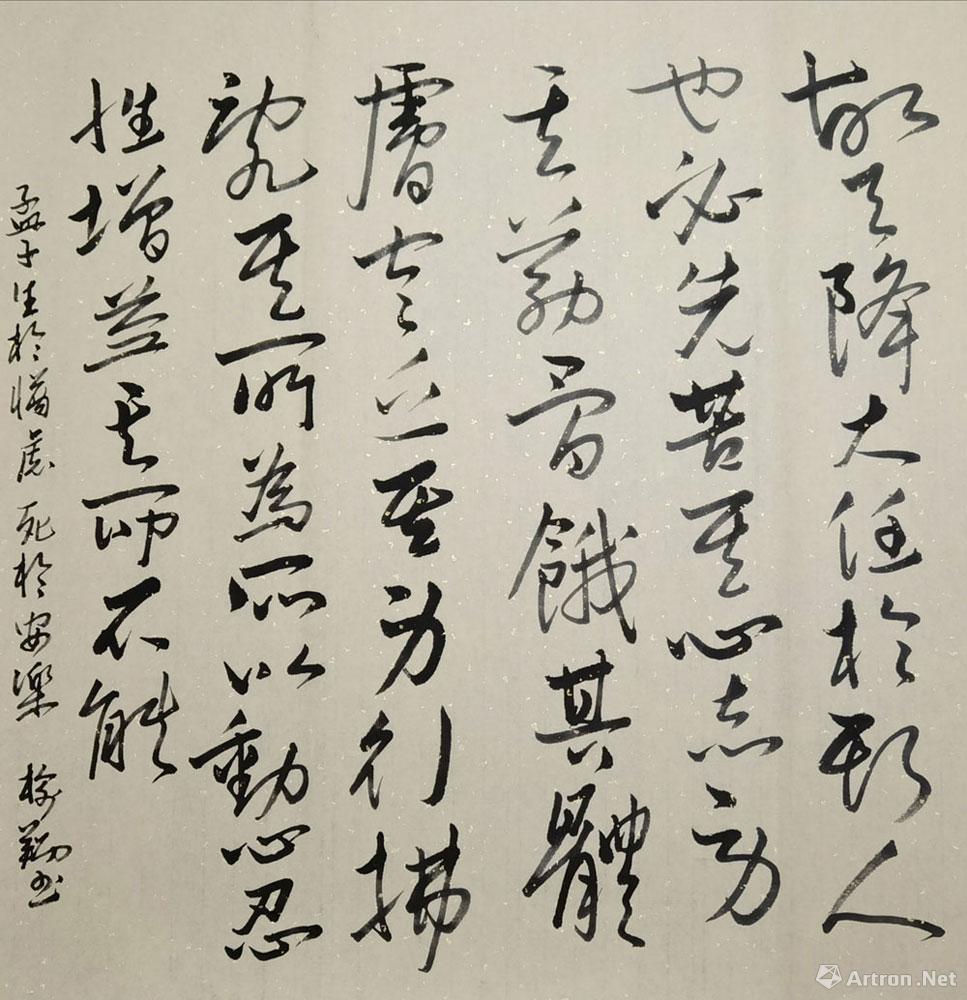 故天降大任於斯人
也必先苦其心志勞
其筋骨餓其體
膚空乏其身行拂
亂其所為所以動心忍
性增益其所不能
孟子生於死於安樂 翔書
Artron.Net